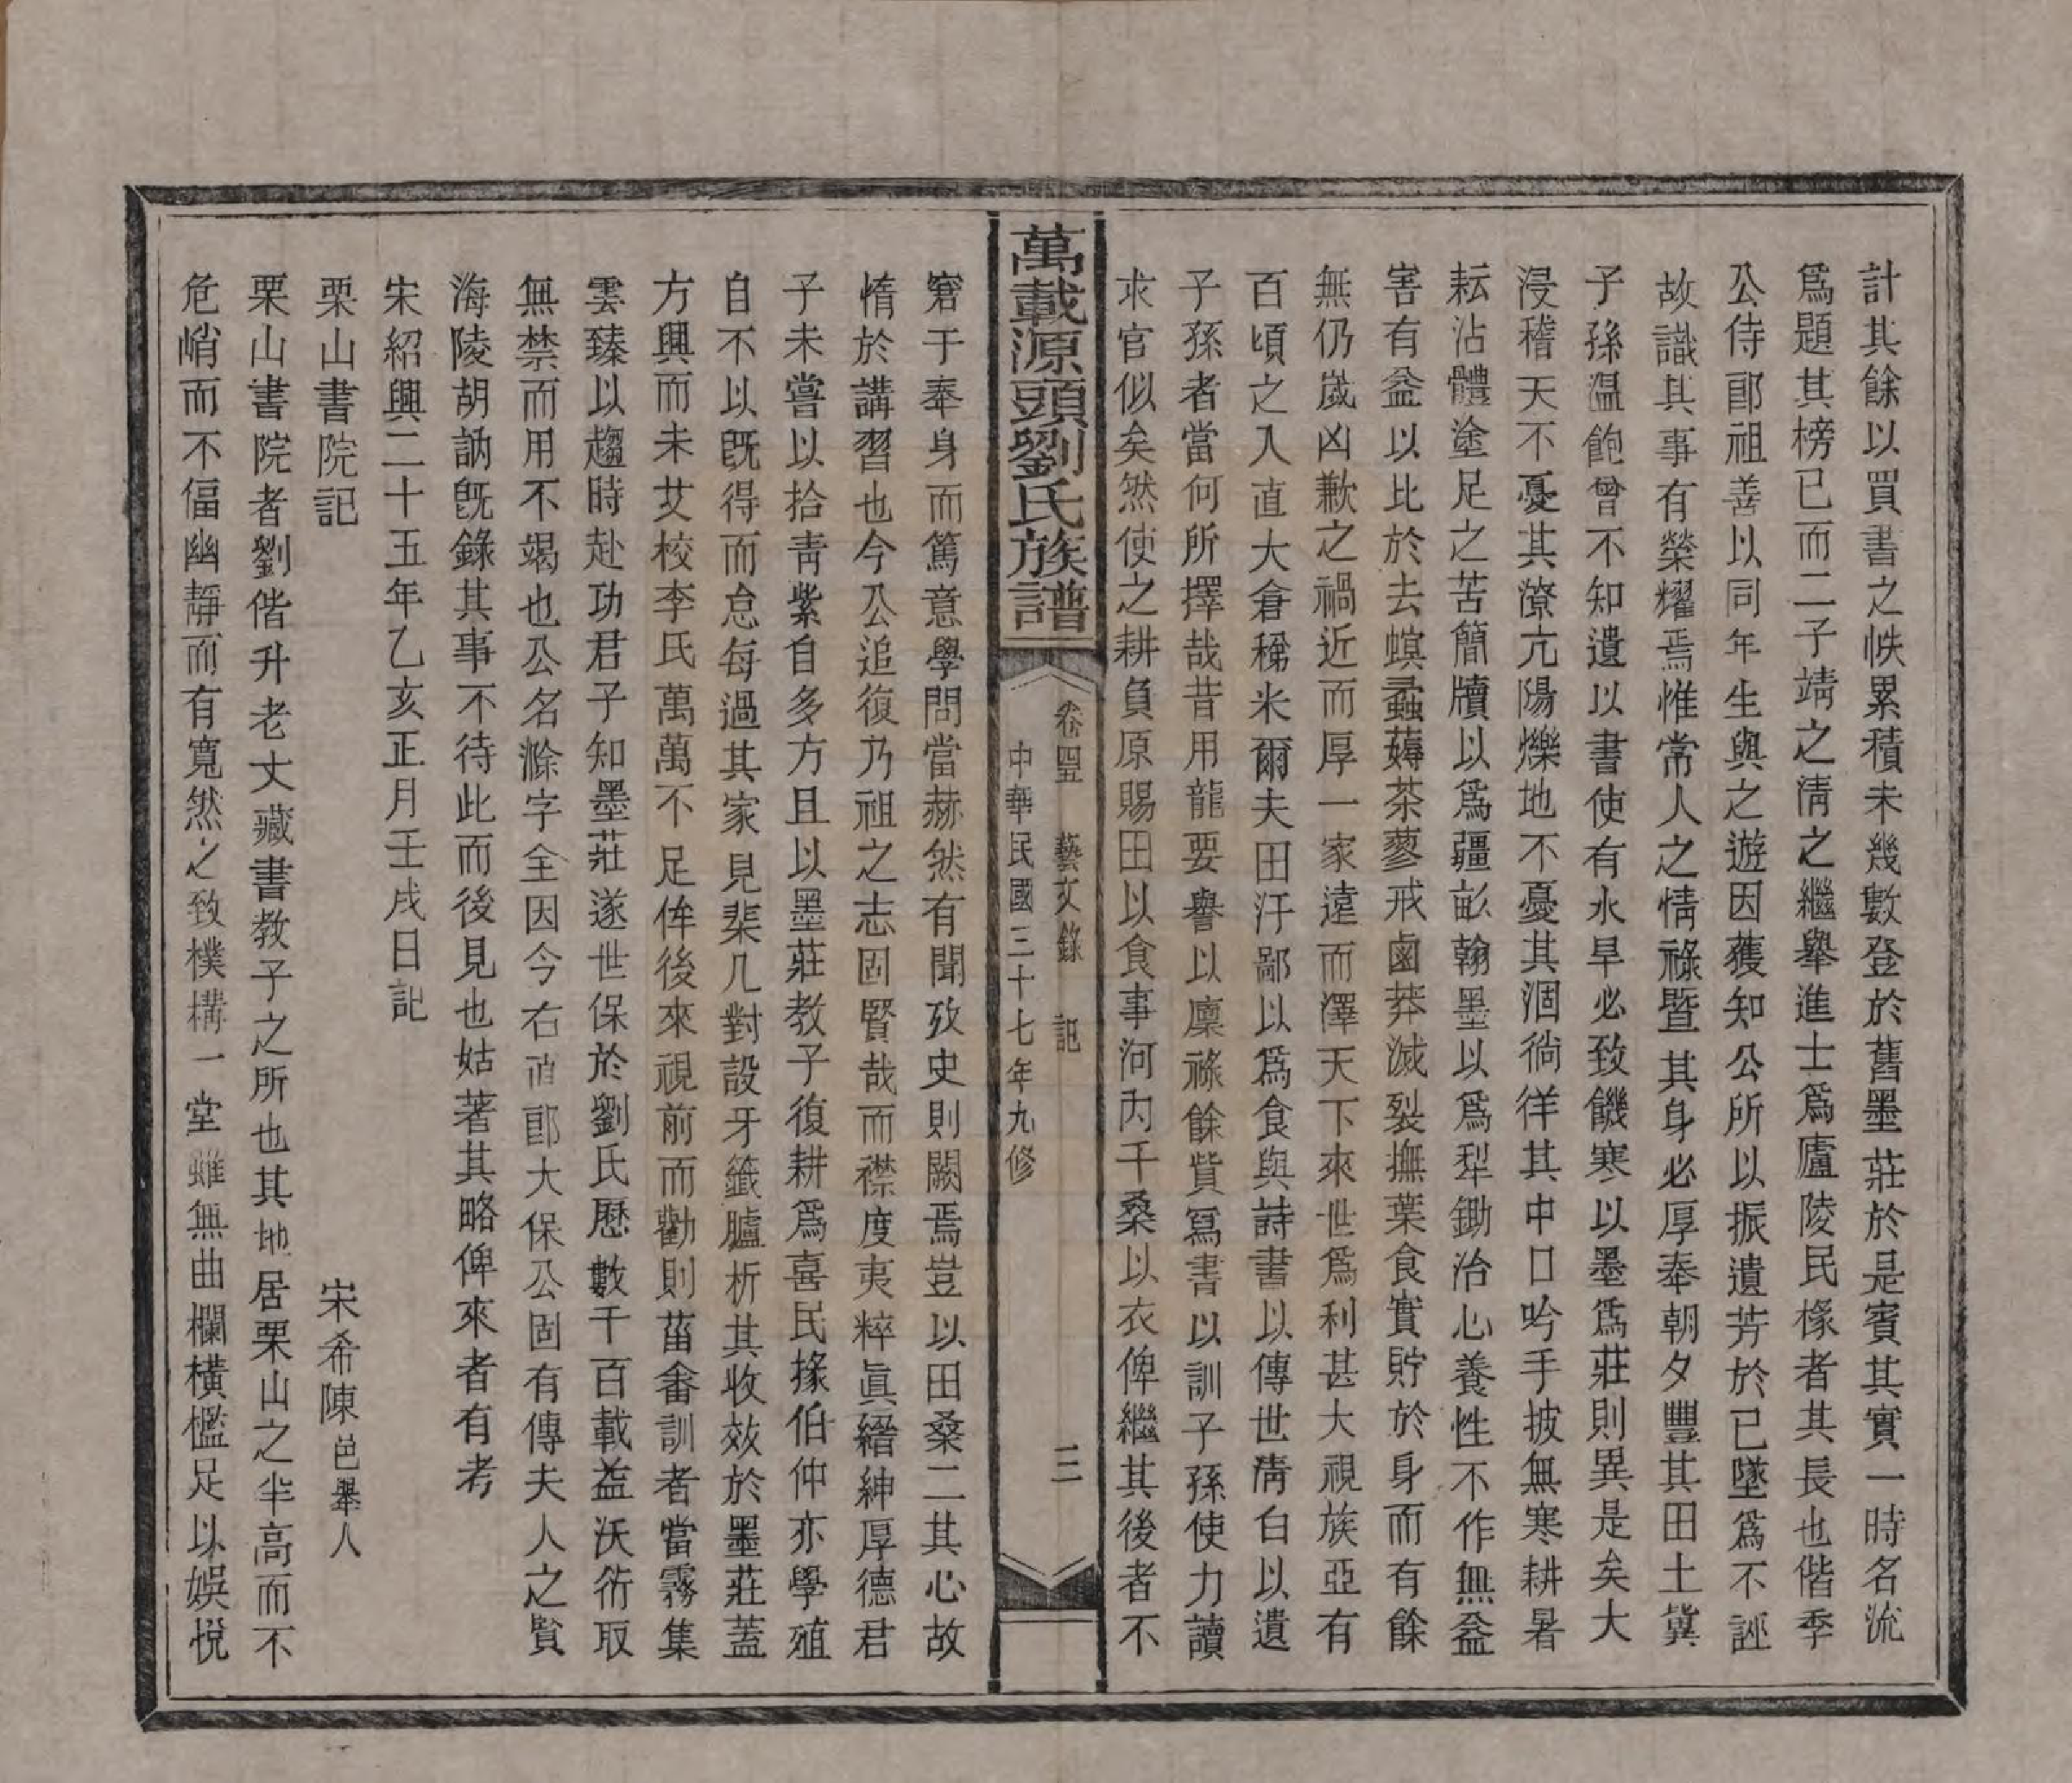 計其餘以買書之帙累積未幾數登於舊墨莊於是賓其實一時名流
爲題其榜已而二子靖之清之繼舉進士爲廬陵民椽者其長也偕季
公侍郎祖善以同年生與之遊因獲知公所以振遺芳於已墜爲不誣
故識其事有榮耀焉惟常人之情祿暨其身必厚奉朝夕豐其田土冀
子孫溫飽曾不知遺以書使有水旱必致饑寒以墨爲莊則異是矣大
浸稽天不憂其潦亢陽爍地不憂其涸徜徉其中口吟手披無寒耕暑
耘沾體塗足之苦簡牘以爲疆畝翰墨以爲犁鋤治心養性不作無益
害有益以比於去螟蟊薅茶蓼戒鹵莽滅裂撫葉食實貯於身而有餘
無仍嵗凶歉之禍近而厚一家遠而澤天下來世爲利甚大視族亞有
百頃之入直大倉稊米爾夫田汙鄙以爲食與詩書以傳世清白以遺
子孫者當何所擇哉昔用龍要譽以廩祿餘貲寫書以訓子孫使力讀
求官似矣然使之耕負原賜田以食事河內千桑以衣俾繼其後者不
萬載源頭劉氏族譜
卷四 藝文錄 記
三
中華民國三十七年九修
窘于奉身而篤意學問當赫然有聞攷史則闕焉豈以田桑二其心故
惰於講習也今公追復乃祖之志固賢哉而襟度夷粹眞縉紳厚德君
子未嘗以拾青紫自多方且以墨莊教子復耕爲喜民掾伯仲亦學殖
自不以既得而怠每過其家見棐几對設牙籤臚析其收效於墨莊蓋
方興而未艾校李氏萬萬不足侔後來視前而勸則菑畬訓者當霧集
雲臻以趨時赴功君子知墨莊遂世保於劉氏歷數千百載益沃衍取
無禁而用不竭也公名滁字全因今右鹵郎大保公固有傳夫人之賢
海陵胡訥旣錄其事不待此而後見也姑著其略俾來者有考
宋紹興二十五年乙亥正月壬戌日記
栗山書院記 宋希陳邑舉人
栗山書院者劉偕升老丈藏書教子之所也其地居栗山之半高而不
危峭而不偪幽靜而有寬然之致樸構一堂雖無曲欄橫檻足以娛悅